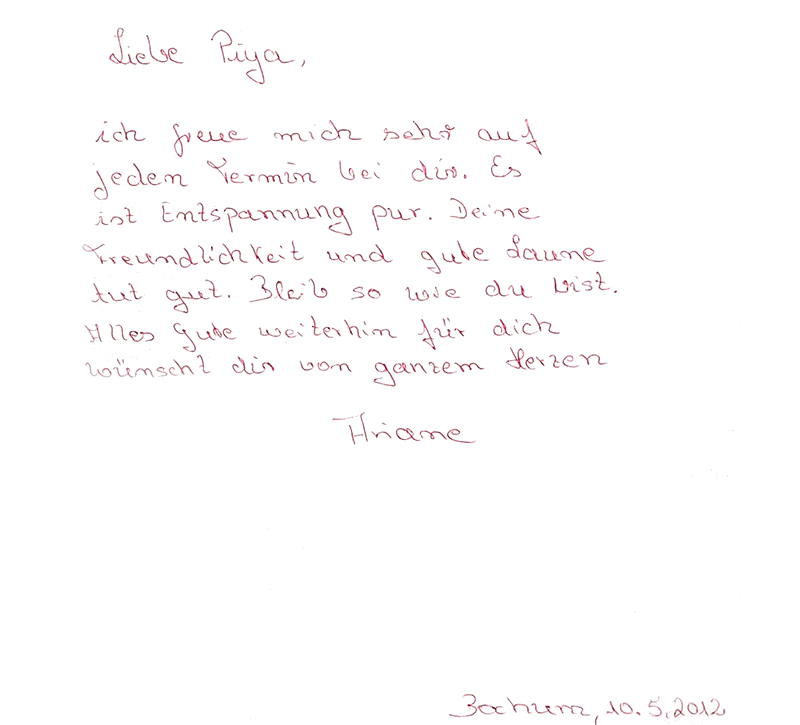 Liebe Piya,
ich freue mich sehr auf
jeden Termin bei dir. Es
ist Entspannung pur. Deine
Freundlichkeit und gute Laune
tut gut. Bleib so wie du bist.
Alles Gute weiterhin für dich
wünscht dir von ganzem Herzen
Ariane
Bochum, 10.5.2012